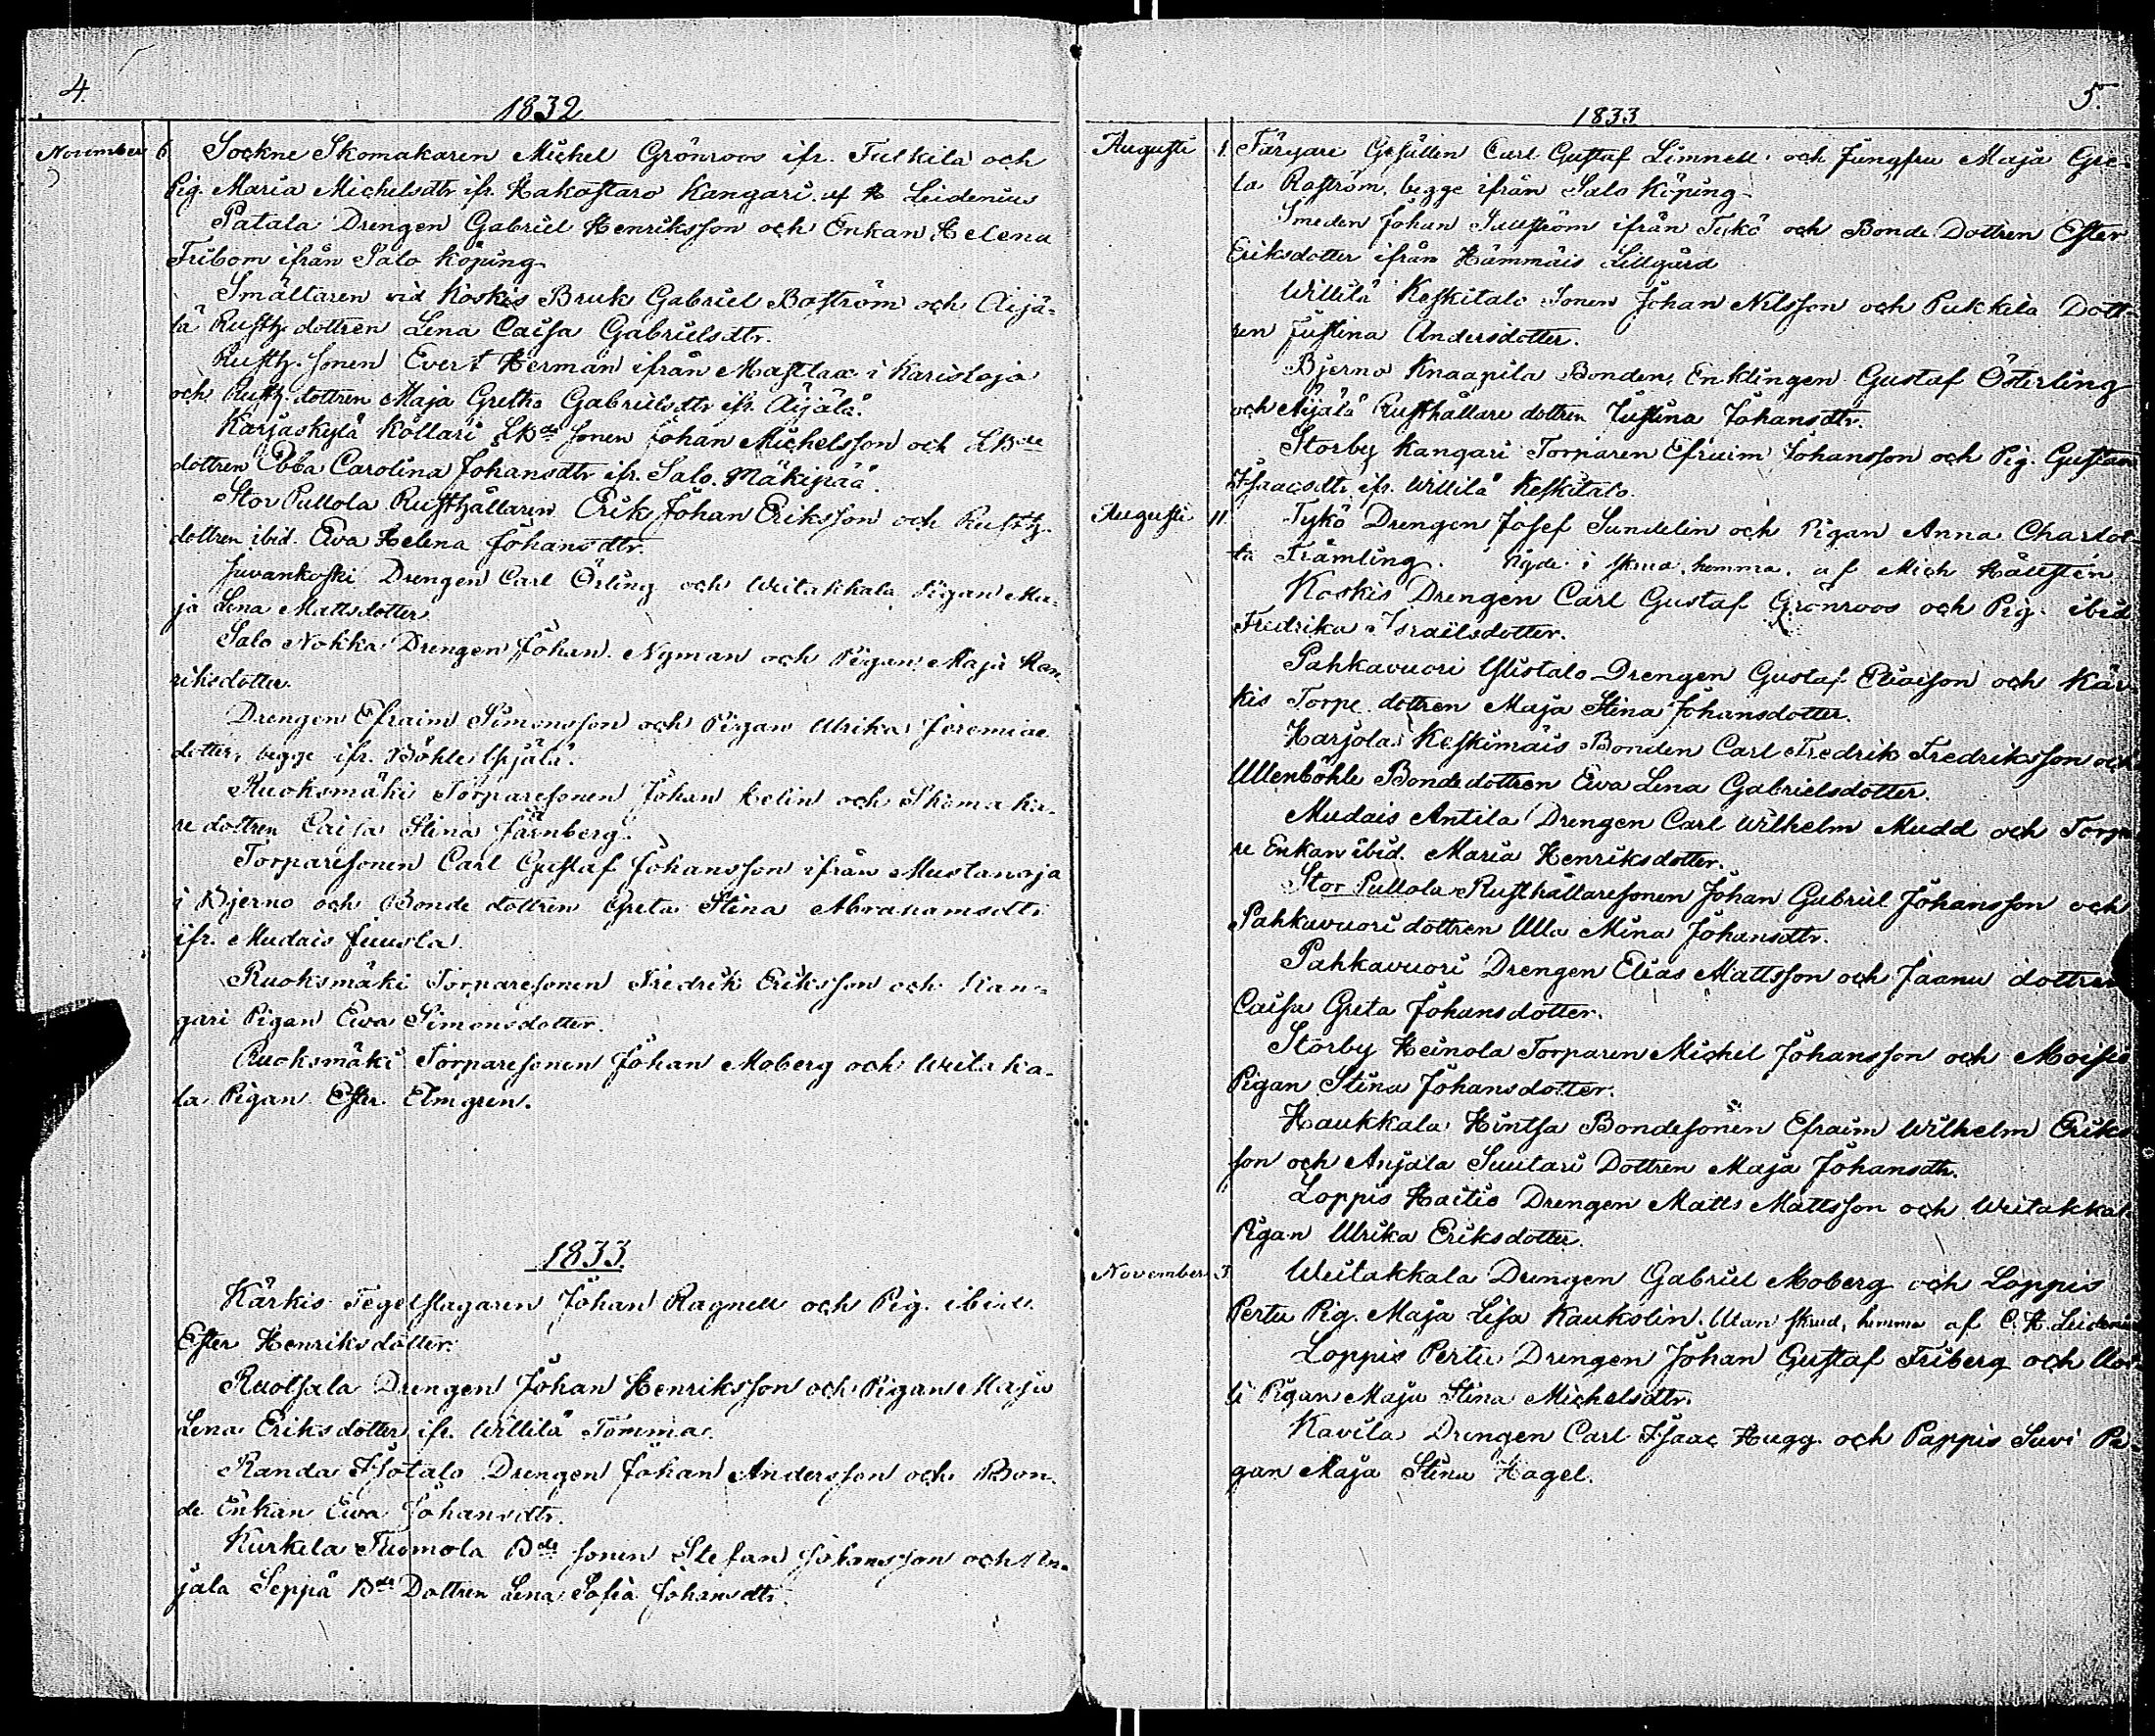 4.
1832
November 6 Sockne Skomakaren Michel Grönroos ifr. Tulkila och
Pig. Maria Michelsdtr ifr. Hakostaro Kangari. af A Leidenius
Patala Drengen Gabriel Henriksson och Enkan Helena
Fribom ifrån Salo köping
Smältaren vid Koskis Bruk Gabriel Boström och Äijä-
lä Rusth. dottren Lena Caisa Gabrielsdtr.
Rusth. sonen Evert Herman ifrån Mastlax i Karisloja
och Rusth. dottren Maja Greta Gabrielsdtr ifr. Äijälä.
Karjaskylä Köllari LBde sonen Johan Michelsson och LBde
dottren Ebba Carolina Johansdtr ifr. Salo. Mäkipää.
Stor Pullola Rusthållaren Erik Johan Eriksson och Rusth.
dottren ibid. Eva Helena Johansdtr.
Juvankoski Drengen Carl Örling och Weitakkala Pigan Ma-
ja Lena Mattsdotter
Salo Nokka Drengen Johan Nyman och Pigan Maja Hen-
riksdotter.
Drengen Efraim Simonsson och Pigan Ulrika Jeremiae
dotter, begge ifr. Böhle Ypjälä.
Ruoksmäki Torparesonen Johan Helin och Skomaka-
re dottren Caisa Stina Järnberg.
Torparesonen Carl Gustaf Johansson ifrån Mustanoja
i Bjerno och Bonde dottren Greta Stina Abrahamsdtr
ifr. Mudais Juusla.
Ruoksmäki Torparesonen Fredrik Eriksson och Kan-
gari Pigan Ewa Simonsdotter.
Ruoksmäki Torparesonen Johan Moberg och Weitaka-
la Pigan Ester Elmgren.
1833.
Kärkis Tegelslagaren Johan Ragnell och Pig. ibid.
Ester Henriksdotter.
Ruotsala Drengen Johan Henriksson och Pigan Maja
Lena Eriksdotter ifr. Willilä Tomma.
Randa Isotalo Drengen Johan Andersson och Bon-
de Enkan Ewa Johansdtr.
Kurkela Tuomola Bde sonen Stefan Johansson och An-
jala Seppä Bde Dottren Lena Sofia Johansdtr.
5.
1833
Augusti 1. Färgare Gesällen Carl Gustaf Limnell och Jungfru Maja Gre-
ta Roström, begge ifrån Salo Köping
Smeden Johan Sallström ifrån Tykö och Bonde Dottren Ester
Eriksdotter ifrån Hämmäis Lillgård
Willilä Keskitalo Sonen Johan Nilsson och Pukkila Dott-
ren Justina Andersdotter.
Bjerno Knaapila Bonden, Enklingen Gustaf Österling
och Äijälä Rusthållare dottren Justina Johansdtr.
Storby Kangari Torparen Efraim Johansson och Pig. Gustava
Isaacsdtr ifr. Willilä Keskitalo.
Augusti 11. Tykö Drengen Josef Sundelin och Pigan Anna Charlot-
ta Främling. af Mich Hällstén
Koskis Drengen Carl Gustaf Grönroos och Pig. ibid
Fredrika Israelsdotter.
Pahkavuori Ylistalo Drengen Gustaf Eliaeson och Kär-
kis Torpe dottren Maja Stina Johansdotter.
Harjola Keskimäis Bonden Carl Fredrik Fredriksson och
Ullenböhle Bondedottren Ewa Lena Gabrielsdotter.
Mudais Antila Drengen Carl Wilhelm Mudd och Torpa-
re Enkan ibid. Maria Henriksdotter.
Stor Pullola Rusthållaresonen Johan Gabriel Johansson och
Pahkavuori dottren Ulla Mina Johansdtr.
Pahkavuori Drengen Elias Mattsson och Jaanu dottren
Caisa Greta Johansdotter.
Storby Heinola Torparen Michel Johansson och Moisio
Pigan Stina Johansdotter.
Haukkala Hintsa Bondesonen Efraim Wilhelm Eriks-
son och Anjala Suutari Dottren Maja Johansdtr.
Loppis Haitis Drengen Matts Mattsson och Weitakkala
Pigan Ulrika Eriksdotter.
November 3. Weitakkala Drengen Gabriel Moberg och Loppis
Pertu Pig. Maja Lisa Kaukolin. Utan skrud, hemma af C. H. Leidenius
Loppis Pertu Drengen Johan Gustaf Friberg och
Pigan Maja Stina Michelsdtr.
Kavila Drengen Carl Isaac Hugg och Pappis Suvi Pi-
gan Maja Stina Hagel.